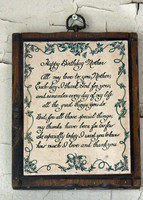 Happy Birthday Mother
All my love to you, Mother,
Each day I thank God for you,
and remember every day of my life
all the good things you do.
And for all those special things
my thanks have been far too few
So especially today I send you
how much I love and thank you.